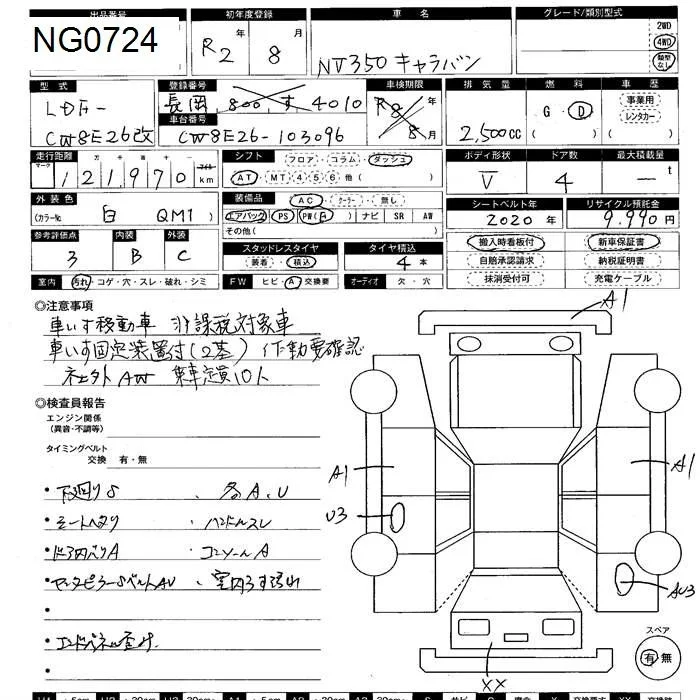 出品番号 初年度登録 車名 グレード/類別型式
NG0724 R2 8 NV350 キャラバン
2WD
4WD
類型なし
型式 登録番号 車検期限 排気量 燃料 車歴
LDF-
CW8E26改
長岡 800 す 4010
R8 年
8 月
2,500cc
G・D
( )
事業用
レンタカー
( )
車台番号
CW8E26-103096
走行距離 シフト フロア・コラム・ダッシュ ボディ形状 ドア数 最大積載量
121970 km
AT・MT 4 5 6 他( )
V 4 ーt
外装色 装備品 AC・クーラー・無し シートベルト年 リサイクル預託金
(カラーNo. 白 QM1 )
エアバッグ PS PW ナビ SR AW
その他( )
2020 年 9,990円
参考評価点 内装 外装 スタッドレスタイヤ タイヤ積込
3 B C
装着・積込 4 本
搬入時看板付 新車保証書
自賠承認請求 納税証明書
抹消受付可 充電ケーブル
室内 汚れ・コゲ・穴・スレ・破れ・シミ FW ヒビ・A 交換要 オーディオ 欠・穴
◎注意事項
車いす移動車 非課税対象車
車いす固定装置付(2基) 作動要確認
社外AW 乗車定員10人
◎検査員報告
エンジン関係
(異音・不調等)
タイミングベルト
交換 有・無
・下回りS ・各A、U
・シートヘタリ ・ハンドルスレ
・ドア内ハリA ・コンソールA
・センターピラーSベルトAU ・室内うす汚れ
・
・エンドパネル歪み
・
A1
A1
A1
U3
AU3
XX
スペア
有 無